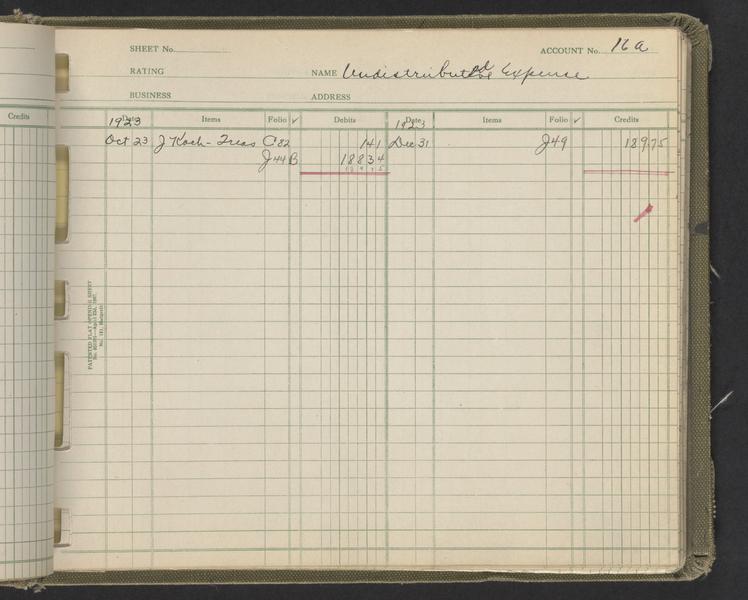 Credits
SHEET No. ACCOUNT No. 16a
RATING NAME Undistributed Expense
BUSINESS ADDRESS
Date Items Folio ✓ Debits Date Items Folio ✓ Credits
1923 1923
Oct 23 J Koch - Treas C82 141 Dec 31 J49 189.75
J44 B 18834
18975
PATENTED FLAT OPENING SHEET